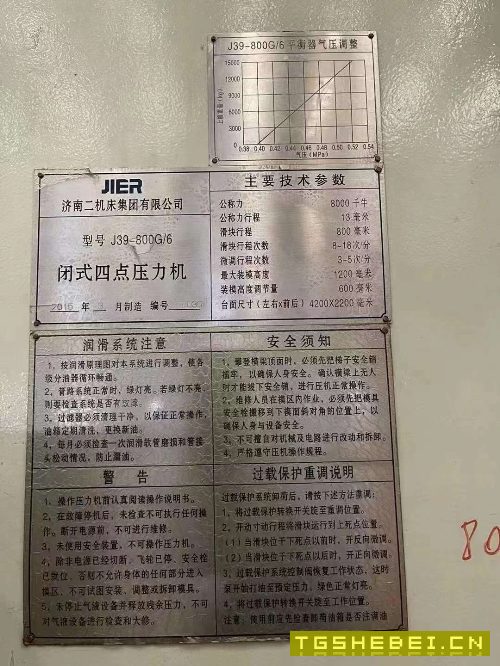 J39-800G/6平衡器气压调整
上模重量(kg)
15000
12000
9000
6000
3000
0
0.38 0.40 0.42 0.44 0.46 0.48 0.50 0.52 0.54
气压(MPa)
JIER
济南二机床集团有限公司
型号 J39-800G/6
闭式四点压力机
2015 年 月制造 编号
主要技术参数
公称力 8000 千牛
公称力行程 13 毫米
滑块行程 800 毫米
滑块行程次数 8-18次/分
微调行程次数 3-5次/分
最大装模高度 1200 毫米
装模高度调节量 600 毫米
台面尺寸(左右x前后) 4200X2200 毫米
润滑系统注意
1、按润滑原理图对本系统进行调整,使各
级分油器循环畅通。
2、管路系统正常时,绿灯亮。若绿灯不亮,
则要检查系统是否有故障。
3、过滤器必须清理干净,以保证正常操作,
油箱定期清洗、更换新油。
4、每月必须检查一次润滑软管磨损和管接
头松动情况,防止漏油。
安全须知
1、攀登横梁顶面时,必须先把梯子安全销
插牢,以确保人身安全。确认横梁上无人
时才能拔下安全销,进行压机正常操作。
2、维修人员在模区内作业,必须先把模具
安全栓搬移到下模面斜对角的位置上,以
确保人身与设备安全。
3、不可擅自对机械及电路进行改动和拆卸。
4、严格遵守压机操作规程。
警告
1、操作压力机前认真阅读操作说明书。
2、在故障停机后,未检查不可执行任何操
作。断开电源前,不可进行维修。
3、未使用安全装置,不可操作压力机。
4、除非电源已经切断,飞轮已停、安全栓
已就位,否则不允许身体的任何部分进入
模区、不可试图安装、调整或拆卸模具。
5、未停止气液设备并释放残余压力,不可
对气液设备进行检查和大修。
过载保护重调说明
过载保护系统卸荷后,请按下述方法重调:
1、将过载保护转换开关旋至重调位置。
2、开动寸动行程将滑块运行到上死点位置。
(1)当滑块位于下死点以前时,开反向微调。
(2)当滑块位于下死点以后时,开正向微调。
3、过载保护系统控制阀恢复工作状态,这时
泵开始打油至预定压力,绿色正常灯亮。
4、将过载保护转换开关旋至工作位置。
注意:使用前应先检查卸荷油箱是否注满油
80
TGSHEBEI.CN